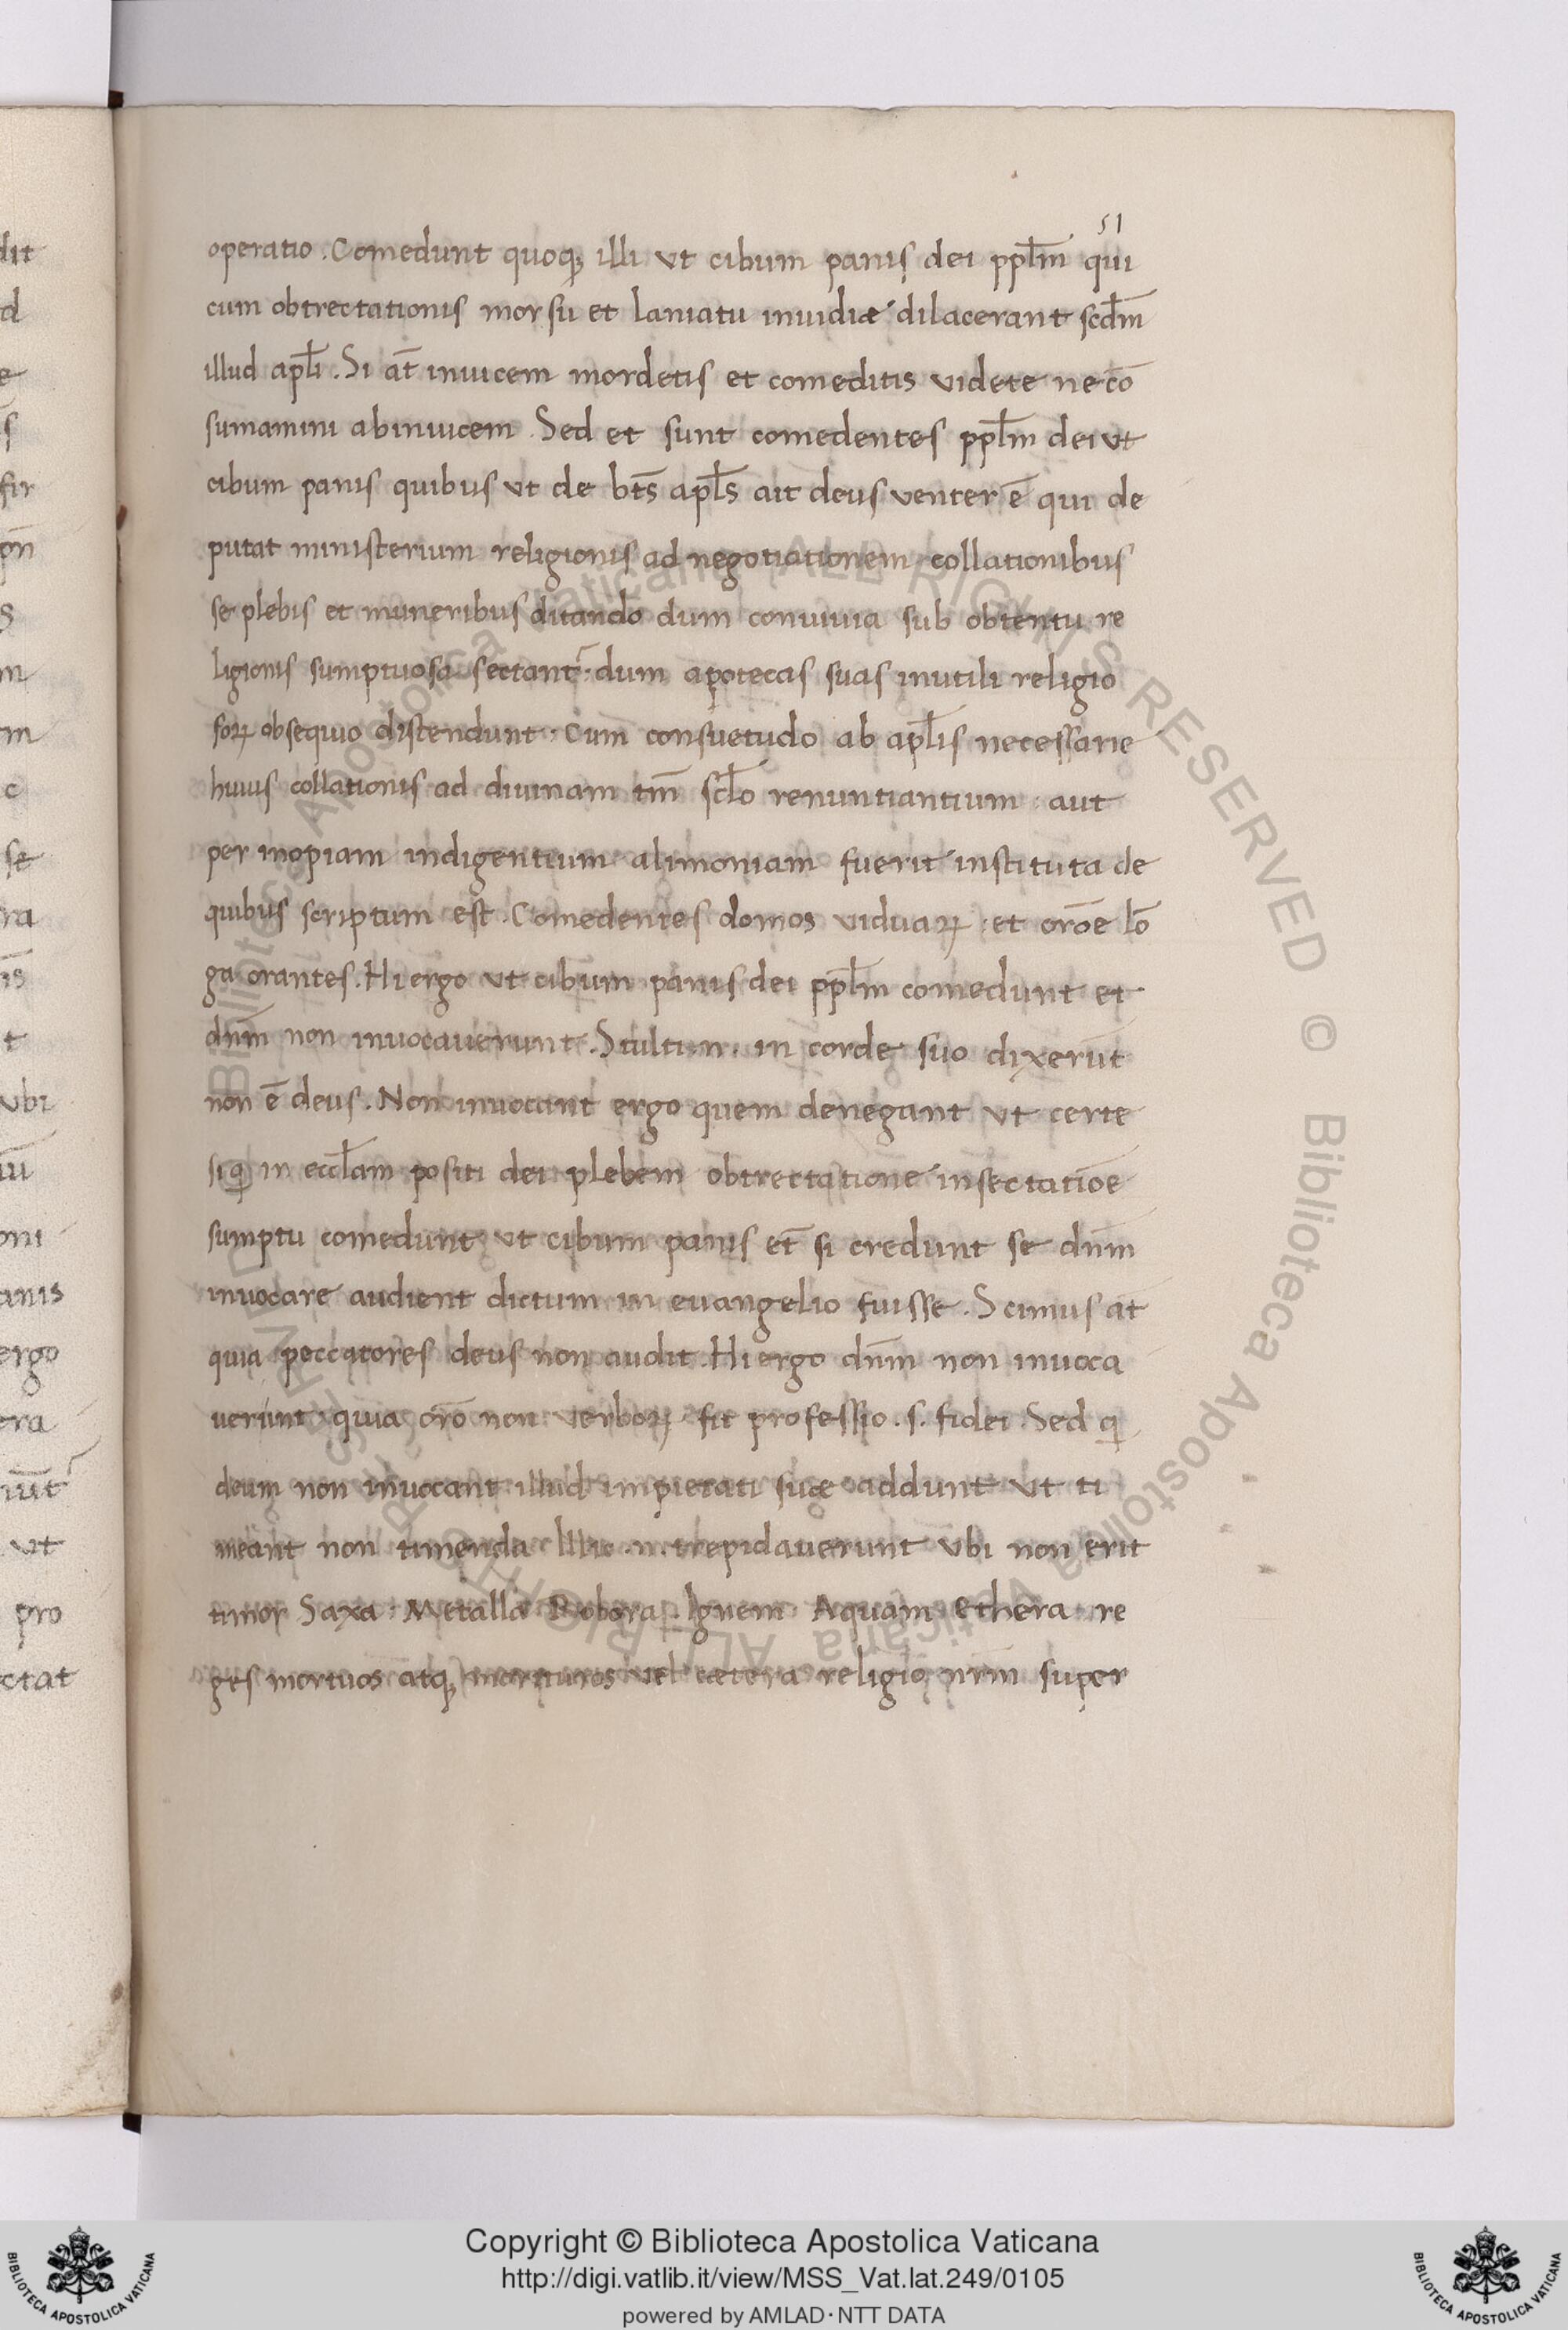 51
operatio. Comedunt quoq; illi vt cibum panis dei ppłm qui
cum obtrectationis morsu et laniatu inuidiæ dilacerant scd̄m
illud apłi. Si at̄ inuicem mordetis et comeditis videte ne cō
sumamini abinuicem. Sed et sunt comedentes ppłm dei vt
cibum panis quibus vt de bt̄s apłs ait deus venter ē qui de
putat ministerium religionis ad negotiationem collationibus
se plebis et muneribus ditando dum conuiuia sub obtentu re
ligionis sumptuosa sectant᷑. dum apotecas suas inutili religio
soꝝ obsequio distendunt. Cum consuetudo ab apłis necessarie
huius collationis ad diuinam tm̄ scło renuntiantium. aut
per inopiam indigentium alimoniam fuerit instituta de
quibus scriptum est. Comedentes domos viduaꝝ. et orōe lō
ga orantes. Hi ergo vt cibum panis dei ppłm comedunt et
dn̄m non inuocauerunt. Stulti .n. in corde suo dixerūt
non ē deus. Non inuocant ergo quem denegant vt certe
si ꝗ in eccłam positi dei plebem obtrectatione insectatiōe
sumptu comedunt vt cibum panis et̄ si credunt se dn̄m
inuocare audient dictum in euangelio fuisse. Scimus at̄
quia peccatores deus non audit. Hi ergo dn̄m non inuoca
uerunt quia orō non verboꝝ fit professio .s. fidei. Sed ꝗ
deum non inuocant illud impietati suæ addunt vt ti
meant non timenda Illic .n. trepidauerunt vbi non erit
timor Saxa. Metalla Robora. Ignem. Aquam ethera re
ges mortuos atq; morituros vel cætera religio nr̄m super
dit
d
e
s
fir
pōn
s
m
m
c
se
ra
īs
t
vbi
iū
oni
anis
ergo
era
iūt
vt
pro
ctat
Biblioteca Apostolica Vaticana ALL RIGHTS RESERVED © Biblioteca Apostolica Vaticana ALL RIGHTS RESERVED
Copyright © Biblioteca Apostolica Vaticana
http://digi.vatlib.it/view/MSS_Vat.lat.249/0105
powered by AMLAD·NTT DATA
BIBLIOTECA APOSTOLICA VATICANA
BIBLIOTECA APOSTOLICA VATICANA